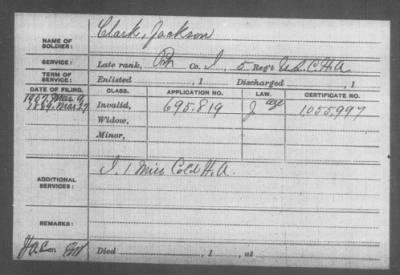 NAME OF SOLDIER: Clark, Jackson
SERVICE: Late rank, Pvt Co. I, 5 Reg't U.S.C.H.A
TERM OF SERVICE: Enlisted , 1 Discharged , 1
DATE OF FILING. CLASS. APPLICATION NO. LAW. CERTIFICATE NO.
1907 Mar 9 age
1889 Mar 27 Invalid, 695.819 J 1,055,997
Widow,
Minor,
ADDITIONAL SERVICES: I. 1 Miss Cold H.A.
REMARKS:
Died , 1 , at